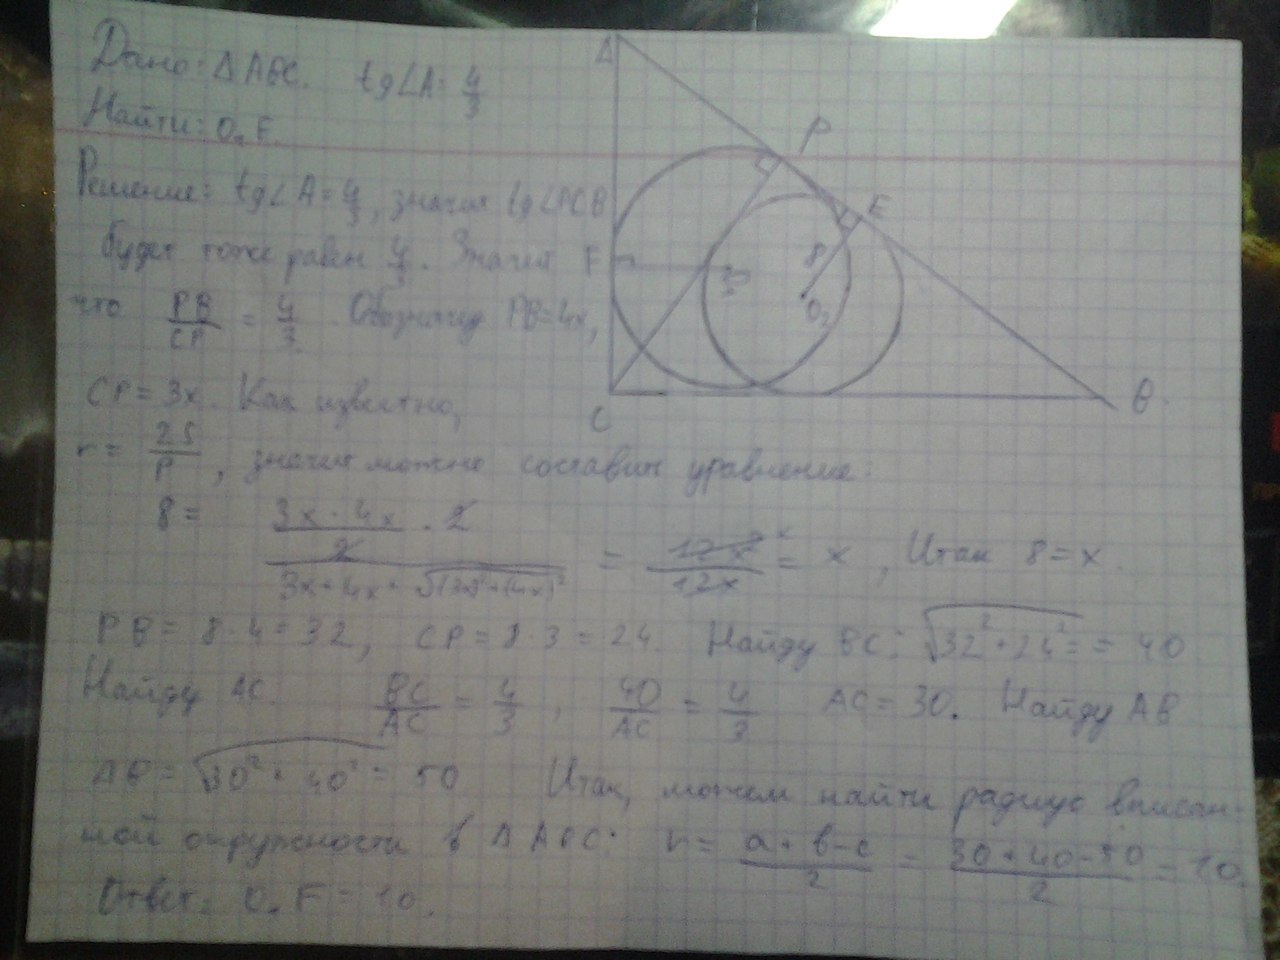 Дано: Δ ABC. tg∠A = 4/3
Найти: O₁F.
Решение: tg∠A = 4/3, значит tg∠PCB
будет тоже равен 4/3. Значит
что PB/CP = 4/3. Обозначу PB=4x,
CP = 3x. Как известно,
r = 2S/P, значит можно составить уравнение:
8 = (3x · 4x / 2 · 2) / (3x + 4x + √((3x)²+(4x)²)) = 12x²/12x = x, Итак 8=x.
PB = 8·4 = 32, CP = 8·3 = 24. Найду BC: √(32²+24²) = 40
Найду AC. BC/AC = 4/3, 40/AC = 4/3 AC = 30. Найду AB
AB = √(30² + 40²) = 50 Итак, можем найти радиус вписан-
ной окружности в Δ ABC: r = (a+b-c)/2 = (30+40-50)/2 = 10.
Ответ: O₁F = 10.
A
P
E
F
8
O₂
C
B